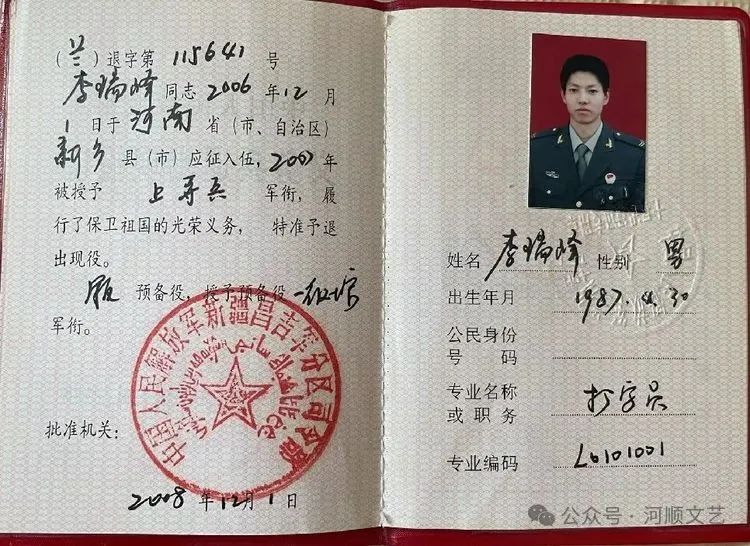 （兰）退字第 115641 号
李瑞峰同志2006年12月
1日于河南省（市、自治区）
新乡县（市）应征入伍，2007年
被授予 上等兵 军衔，履
行了保卫祖国的光荣义务，特准予退
出现役。
服 预备役，授予预备役
军衔。
中国人民解放军新疆昌吉军分区司令部
批准机关：
2008年12月1日
姓名 李瑞峰 性别 男
出生年月 1987.4.30
公民身份
号码
专业名称
或职务 打字员
专业编码 L0101001
公众号·河顺文艺